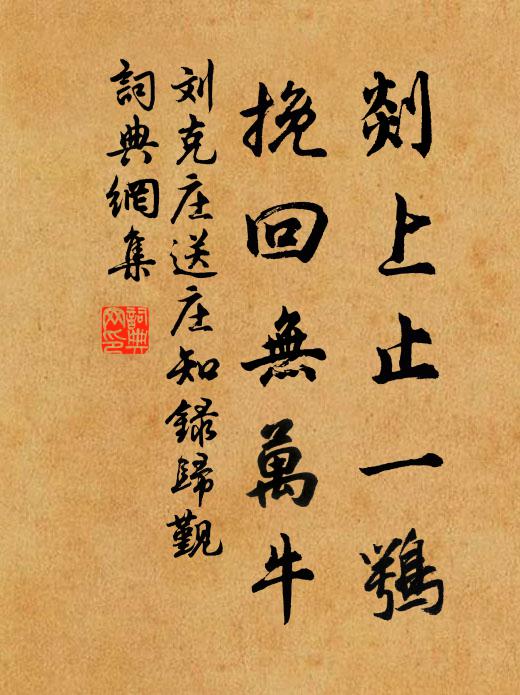 剡上止一鶚
挽回無萬牛
刘克庄送庄知録歸觐
詞典網集
詞典網印